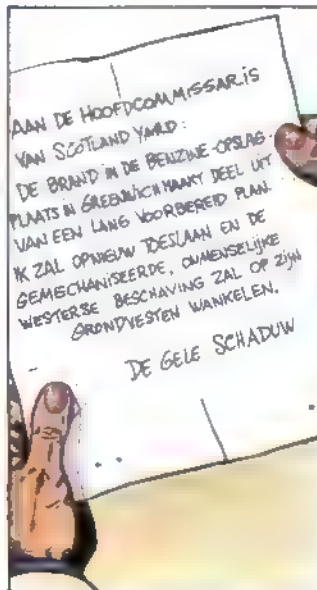 AAN DE HOOFDCOMMISSARIS
VAN SCOTLAND YARD:
DE BRAND IN DE BENZINE-OPSLAG-
PLAATS IN GREENWICH MAAKT DEEL UIT
VAN EEN LANG VOORBEREID PLAN.
IK ZAL OPNIEUW TOESLAAN EN DE
GEMECHANISEERDE, ONMENSELIJKE
WESTERSE BESCHAVING ZAL OP ZIJN
GRONDVESTEN WANKELEN.
DE GELE SCHADUW